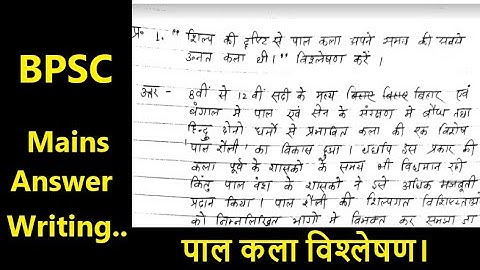 BPSC
Mains
Answer
Writing..
प्र० 1. " शिल्प की दृष्टि से पाल कला अपने समय की सबसे
उन्नत कला थी।" विश्लेषण करें।
उत्तर - 8वीं से 12वीं सदी के मध्य बिहार एवं
बंगाल में पाल एवं सेन के संरक्षण में बौद्ध तथा
हिन्दु दोनो धर्मो से प्रभावित कला की एक विशेष
'पाल शैली' का विकास हुआ। यद्यपि इस प्रकार की
कला पूर्व के शासकों के समय भी विद्यमान रही
किंतु पाल वंश के शासकों ने इसे अधिक मजबूती
प्रदान किया। पाल शैली की शिल्पगत विशिष्टताओं
को निम्नलिखित भागो में विभक्त कर समझा जा
पाल कला विश्लेषण।